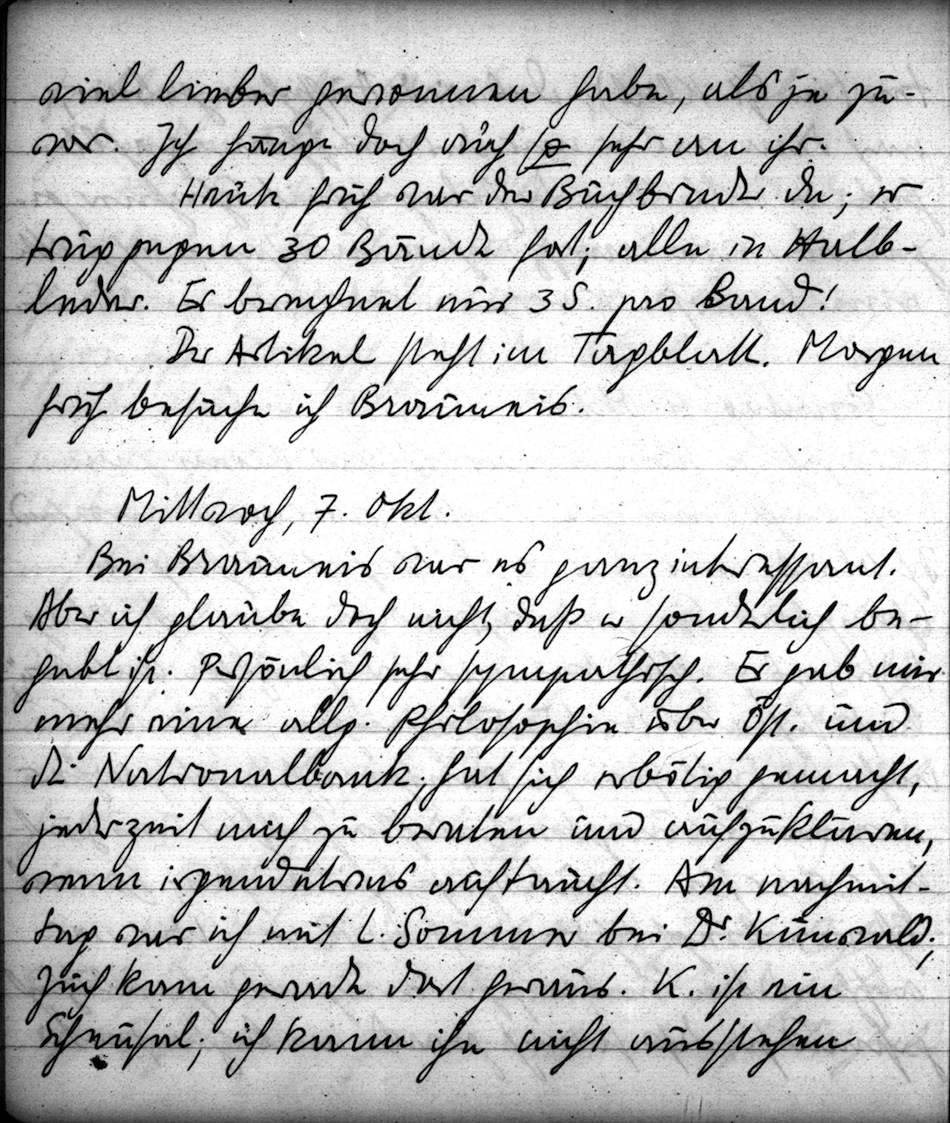 viel lieber gewonnen habe, als je zu-
vor. Ich hänge doch auch so sehr an ihr.
Heute früh war der Buchbinder da; er
trug gegen 30 Bände fort, alle in Halb-
leder. Er berechnet mir 3 S. pro Band!
Der Artikel steht im Tagblatt. Morgen
früh besuche ich Braüneis.
Mittwoch, 7. Okt.
Bei Braüneis war es ganz interessant.
Aber ich glaube doch nicht, daß er sonderlich be-
gabt ist. Persönlich sehr sympathisch. Er gab mir
mehr eine allg. Philosophie über Öst. und
die Nationalbank, hat sich erbötig gemacht,
jederzeit mich zu beraten und aufzuklären,
wenn irgendetwas auftaucht. Am nachmit-
tag war ich mit L. Sommer bei Dr. Kunwald;
kam gerade dort heraus. K. ist ein
Scheusal; ich kann ihn nicht ausstehen